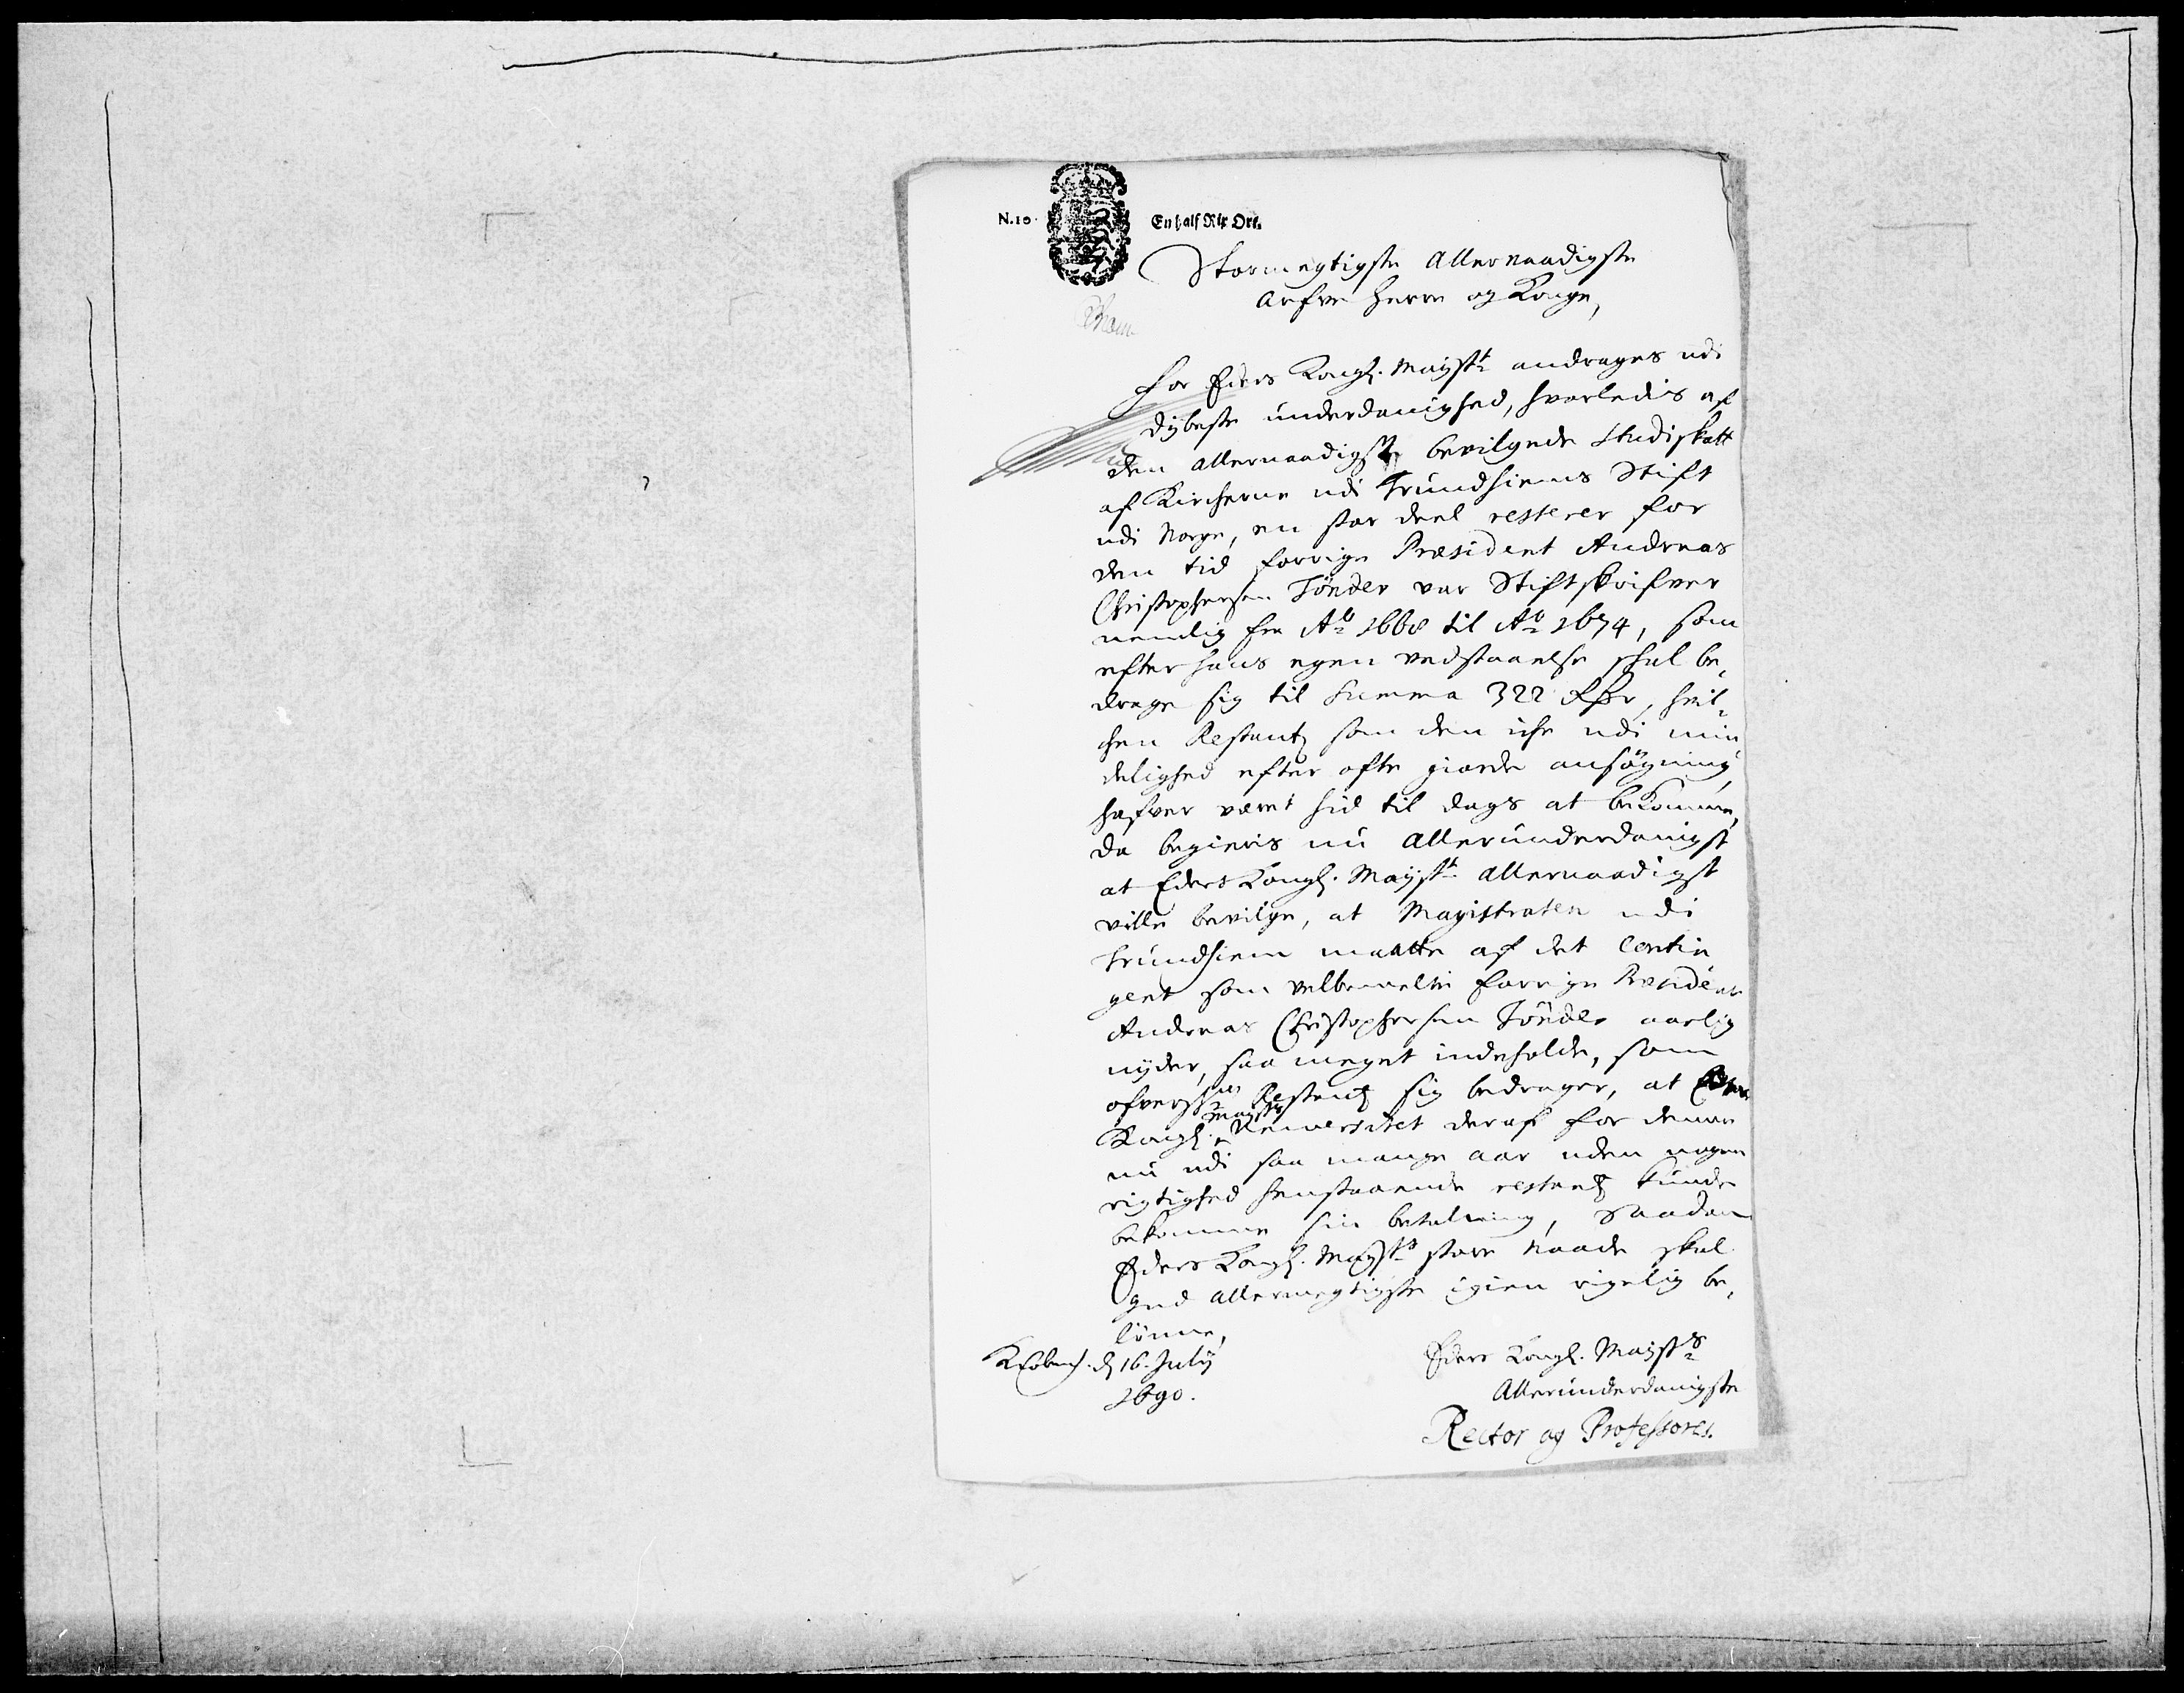 N.10.
En half Rix Ort.
Stormegtigste Allernaadigste
Arfve Herre og Konge,
For Eders Kongl. Mayst. andrages udi
dybeste underdanighed, hvorledis af
den allernaadigste bevilgede Studiskatt
af Kircherne udi Trundhiems Stift
udi Norge, en stor deel rester er for
den tid forrige Præsident Andreas
Christophersen Tönder var Stiftskrifver
nemlig fra Ao 1668 til Ao 1674, som
efter hans egen vedstaaelse skal be-
drage sig til Summa 322 Rdr, hvil-
chen Restantz som den iche udi min-
delighed efter ofte giorde ansögning,
hafver været hid til dags at bekomme,
da begieris nu allerunderdanigst
at Eders Kongl. Mayst. allernaadigst
ville bevilge, at Magistraten udi
Trundhiem maatte af det Contin
gent som velbemelte forrige Præsident
Andreas Christophersen Tönder aarlig
nyder, saa meget indeholde, som
ofversch.ne Restantz sig bedrager, at Eders
Kongl. Maysts Universitet deraf for denne
nu udi saa mange aar uden nogen
rigtighed henstaaende restantz kunde
bekomme sin betalning, Saadan
Eders Kongl. Maysts store Naade skal
Gud allermegtigste igien rigelig be-
lönne,
Kiöbenh. d 16. July
1690.
Eders Kongl. Maysts
Allerunderdanigste
Rector og Professores.